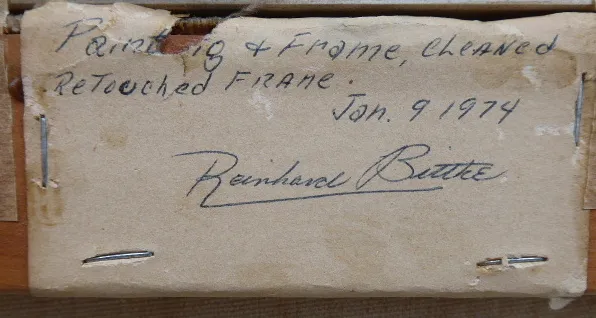 Painting & Frame, Cleaned
ReTouched Frame.
Jan. 9 1974
Reinhard Bittke